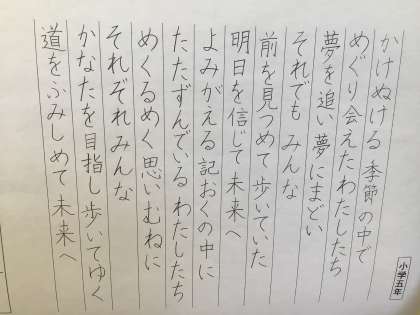 かけぬける 季節の中で
めぐり会えたわたしたち
夢を追い 夢にまどい
それでも みんな
前を見つめて 歩いていた
明日を信じて 未来へ
よみがえる 記おくの中に
たたずんでいる わたしたち
めくるめく 思い むねに
それぞれ みんな
かなたを目指し 歩いてゆく
道をふみしめて 未来へ
小学五年